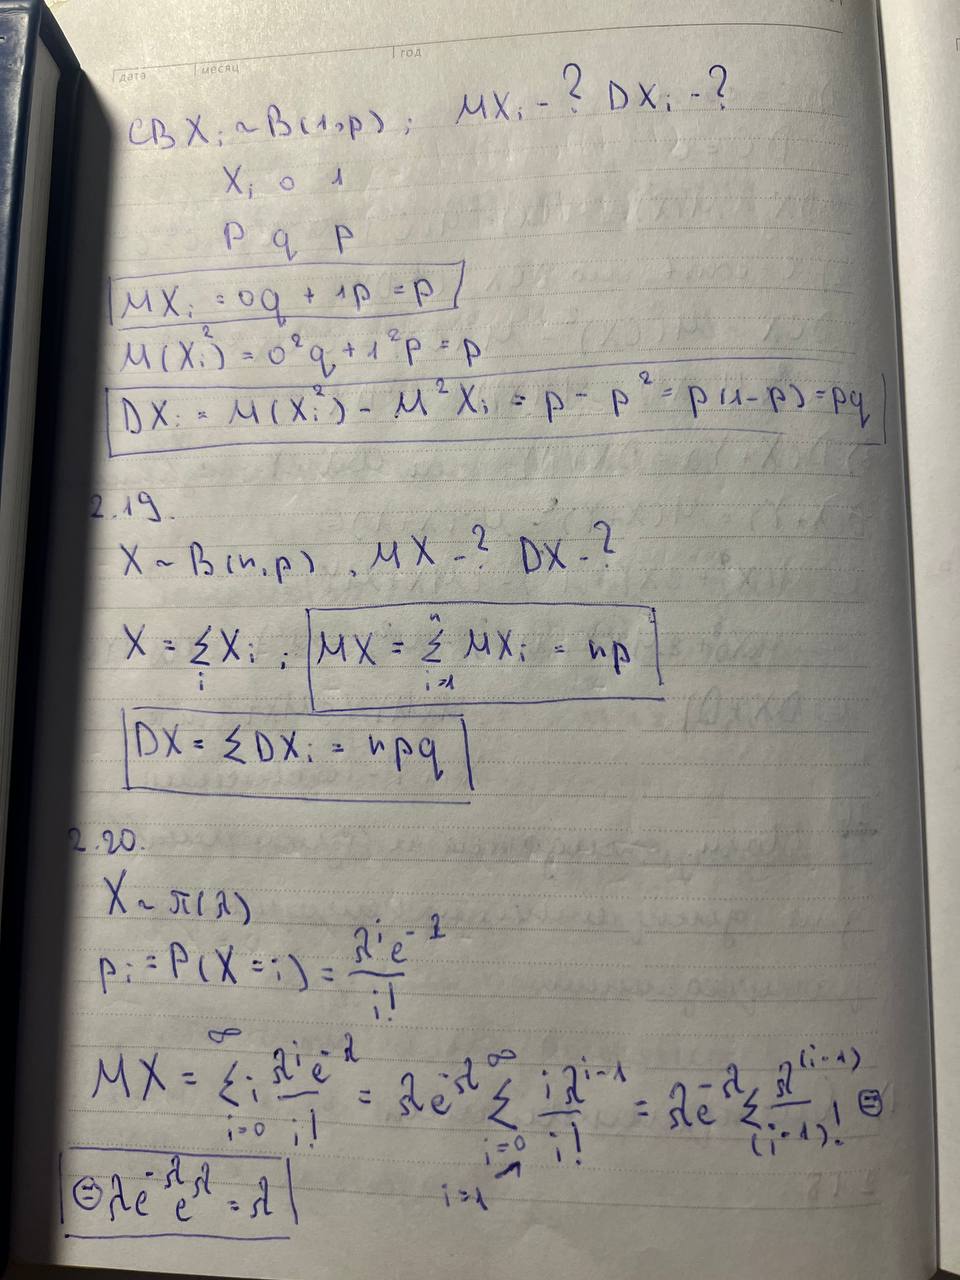 дата месяц год
СВ Xᵢ ~ B(1,p); MXᵢ - ? DXᵢ - ?
Xᵢ 0 1
P q p
MXᵢ = 0q + 1p = p
M(Xᵢ²) = 0²q + 1²p = p
DXᵢ = M(Xᵢ²) - M²Xᵢ = p - p² = p(1-p) = pq
2.19.
X ~ B(n,p), MX - ? DX - ?
X = ∑ᵢ Xᵢ ; MX = ∑ᵢ₌₁ⁿ MXᵢ = np
DX = ∑DXᵢ = npq
2.20.
X ~ π(λ)
pᵢ = P(X=i) = λⁱe^-λ / i!
MX = ∑ᵢ₌₀^∞ i λⁱe^-λ / i! = λe^-λ ∑ᵢ₌₀^∞ iλ^i-1 / i! = λe^-λ ∑ λ^(i-1) / (i-1)! ⊜
i=1
⊜ λe^-λ e^λ = λ